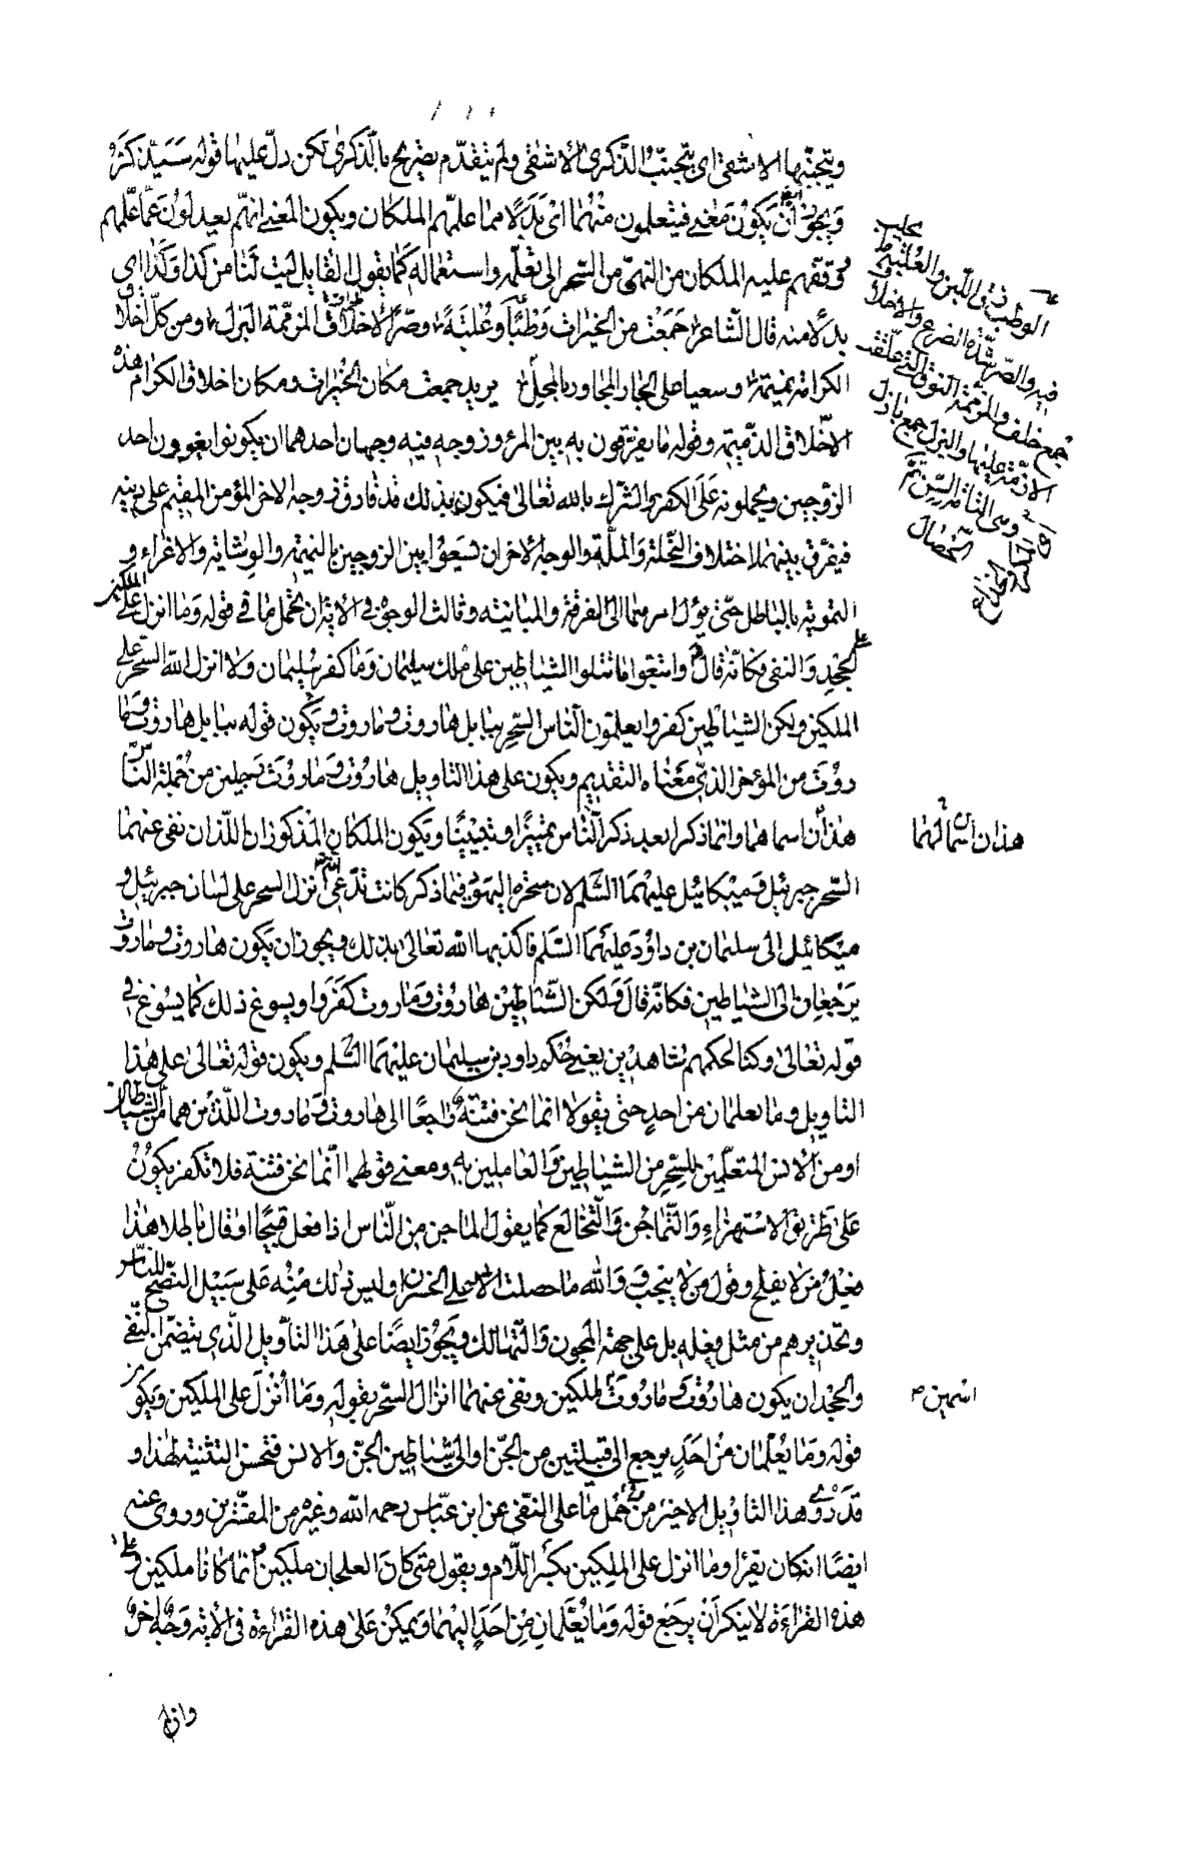 ويتجنبها الاشقى اى يتجنب الذكرى الاشقى ولم يتقدم تصريح بالذكرى لكن دل عليها قوله سيذكر
ويجوز ايضا أن يكون معنى فيتعلمون منهما اى بدلا مما علمهم الملكان ويكون المعنى انهم يعدلون عما علمهم
ووقفهم عليه الملكان من النهى من السحر الى تعلمه واستعماله كما يقول القايل ليت لنا من كذا وكذا اى
بدلا منه قال الشاعر جمعت من الخيرات وطبا وعلبة وصرا لاخلاف المزممة البزل ومن كل اخلاق
الكرام نميمة وسعيا على الجار المجاور بالمحل يريد جمعت مكان الخيرات ومكان اخلاق الكرام هذه
الاخلاق الذميمة وقوله ما يفرقون به بين المرء وزوجه فيه وجهان احدهما ان يكونوا يغوون احد
الزوجين ويحملونه على الكفر والشرك بالله تعالى فيكون بذلك قد فارق زوجه الاخر المؤمن المقيم على دينه
فيفرق بينهما اختلاف النحلة والملة والوجه الاخر ان يسعوا بين الزوجين بالنميمة والوشاية والاغراء و
التمويه بالباطل حتى يؤل امرهما الى الفرقة والمباينة وثالث الوجوه فى الاية ان تحمل ما فى قوله وما انزل على الملكين
على الجحد والنفى فكانه قال واتبعوا ما تتلوا الشياطين على ملك سليمان وما كفر سليمان ولا انزل الله السحر على
الملكين ولكن الشياطين كفروا يعلمون الناس السحر ببابل هاروت وماروت ويكون قوله ببابل هاروت وما
روت من المؤخر الذى معناه التقديم ويكون على هذا التاويل هاروت وماروت رجلين من جملة الناس
هذان اسماهما وانما ذكرا بعد ذكر الناس تمييزا وتبيينا ويكون الملكان المذكوران اللذان نفى عنهما
السحر جبرئيل وميكائيل عليهما السلم لان سحرة اليهود فيما ذكر كانت تدعى ان الله انزل السحر على لسان جبرئيل و
ميكائيل الى سليمان بن داود عليهما السلم فاكذبها الله تعالى بذلك ويجوز ان يكون هاروت وماروت
يرجعان الى الشياطين فكانه قال ولكن الشياطين هاروت وماروت كفروا ويسوغ ذلك كما يسوغ فى
قوله تعالى وكنا لحكمهم شاهدين يعنى حكم داود بن سليمان عليهما السلم ويكون قوله تعالى على هذا
التاويل وما يعلمان من احد حتى يقولا انما نحن فتنة راجعا الى هاروت وماروت اللذين هما من الشياطين
او من الانس المتعلمين للسحر من الشياطين والعاملين به ومعنى قولهما انما نحن فتنة فلا تكفر يكون
على طريق الاستهزاء والتماجن والتخالع كما يقول الماجن من الناس اذا فعل قبيحا او قال باطلا هذا
فعل من لا يفلح وقول من لا ينجب والله ما حصلت الا على الخسران وليس ذلك منه على سبيل النصح للناس
وتحذيرهم من مثل فعله بل على جهة المجون والتهالك ويجوز ايضا على هذا التأويل الذى يتضمن النفى
والجحد ان يكون هاروت وماروت الملكين ونفى عنهما انزال السحر بقوله وما أنزل على الملكين ويكون
قوله وما يعلمان من احد يرجع الى قبيلتين من الجن او الى شياطين الجن والانس فتحسن التثنية لهذا و
قد روى هذا التاويل الاخير من حمل ما على النفى عن ابن عباس رحمه الله وغيره من المفسرين وروى عنه
ايضا انه كان يقرا وما انزل على الملكين بكسر اللام ويقول متى كان العلجان ملكين انما كانا ملكين وعلى
هذه القراءة لا ينكر أن يرجع قوله وما يعلمان من احد اليهما ويمكن على هذه القراءة فى الاية وجه اخر
وان
الوطب زق اللبن والعلبة يحلب
فيه والصر شد الضرع والاخلاف
جمع خلف والمزممة النوق التى علقت
الازمة عليها والبزل جمع بازل
الخصال
هذان اسماهما
اسمين